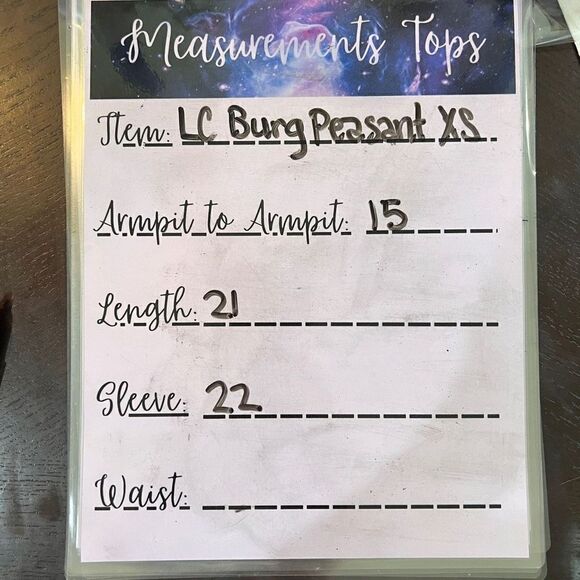 Measurements Tops
Item: LC Burg Peasant XS
Armpit to Armpit: 15
Length: 21
Sleeve: 22
Waist: